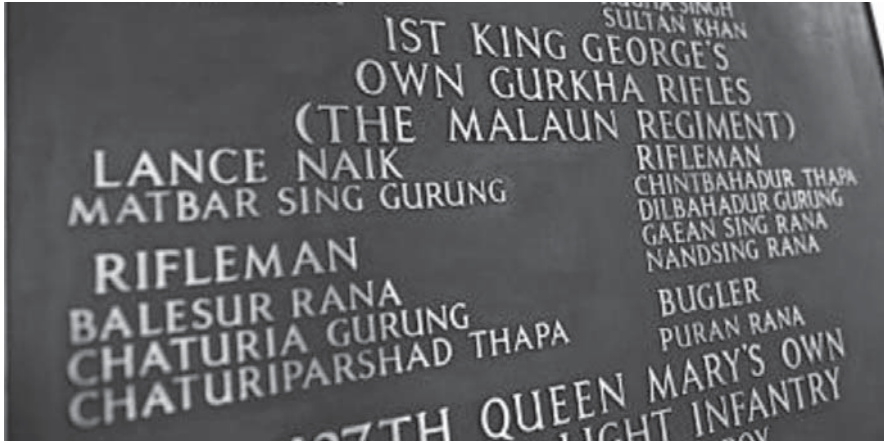 SINGH
SULTAN KHAN
1ST KING GEORGE'S
OWN GURKHA RIFLES
(THE MALAUN REGIMENT)
LANCE NAIK
MATBAR SING GURUNG
RIFLEMAN
BALESUR RANA
CHATURIA GURUNG
CHATURIPARSHAD THAPA
RIFLEMAN
CHINTBAHADUR THAPA
DILBAHADUR GURUNG
GAEAN SING RANA
NANDSING RANA
BUGLER
PURAN RANA
QUEEN MARY'S OWN
LIGHT INFANTRY